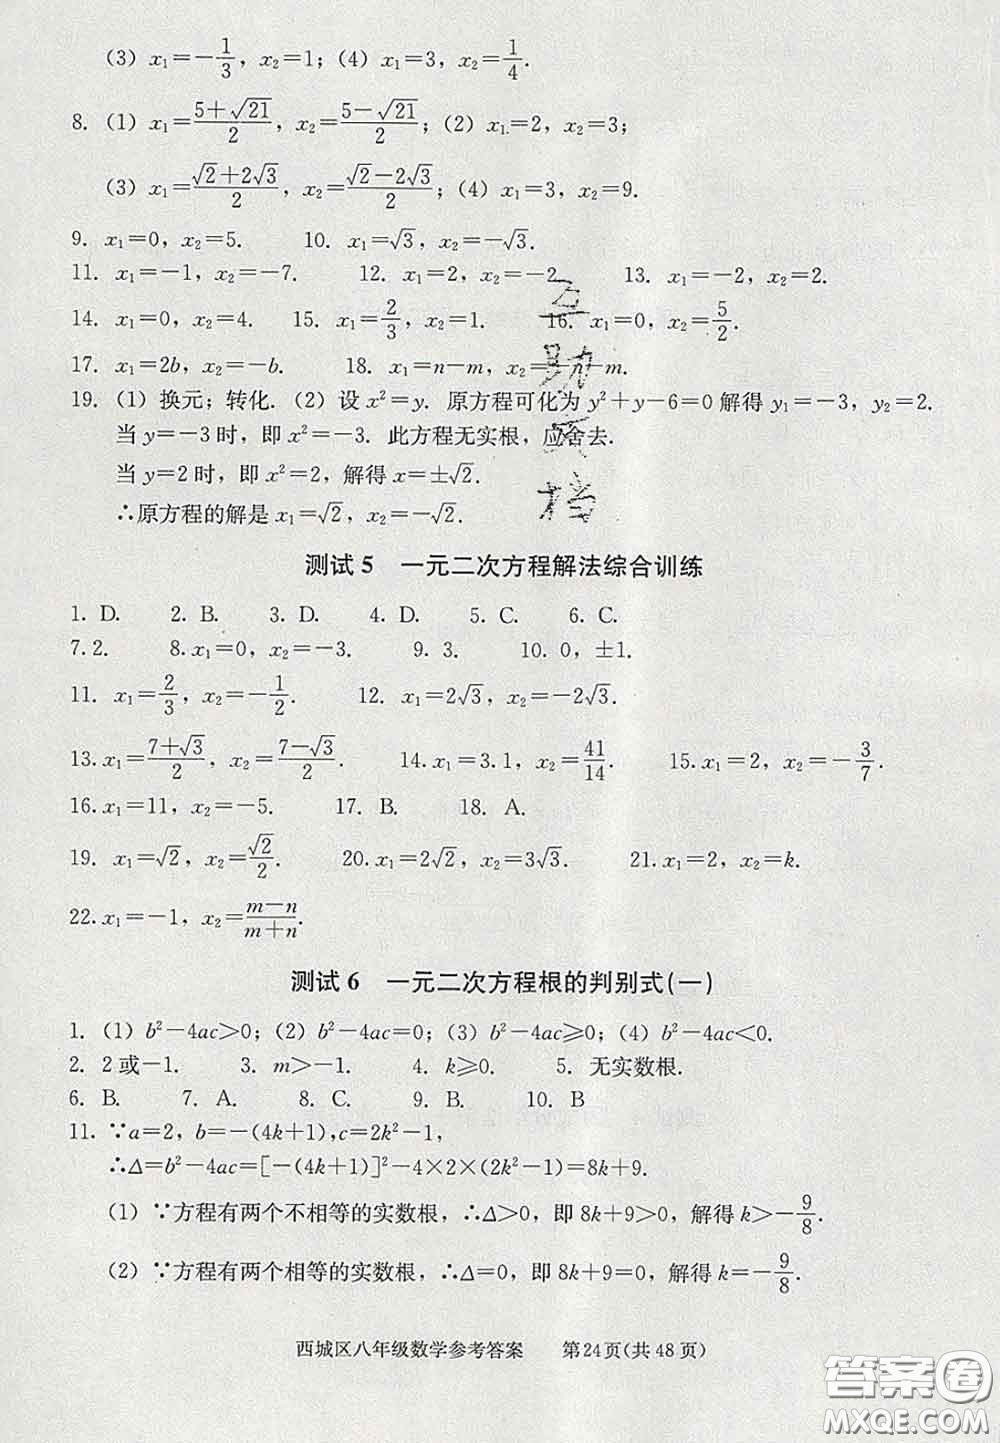 (3) x₁=-1/3, x₂=1; (4) x₁=3, x₂=1/4.
8. (1) x₁=(5+√21)/2, x₂=(5-√21)/2; (2) x₁=2, x₂=3;
(3) x₁=(√2+2√3)/2, x₂=(√2-2√3)/2; (4) x₁=3, x₂=9.
9. x₁=0, x₂=5. 10. x₁=√3, x₂=-√3.
11. x₁=-1, x₂=-7. 12. x₁=2, x₂=-2 13. x₁=-2, x₂=2.
14. x₁=0, x₂=4. 15. x₁=2/3, x₂=1. 16. x₁=0, x₂=5/2.
17. x₁=2b, x₂=-b. 18. x₁=n-m, x₂=-n-m.
19. (1) 换元; 转化. (2) 设 x²=y. 原方程可化为 y²+y-6=0 解得 y₁=-3, y₂=2.
当 y=-3 时, 即 x²=-3. 此方程无实根, 应舍去.
当 y=2 时, 即 x²=2, 解得 x=±√2.
∴原方程的解是 x₁=√2, x₂=-√2.
测试 5 一元二次方程解法综合训练
1. D. 2. B. 3. D. 4. D. 5. C. 6. C.
7.2. 8.x₁=0, x₂=-3. 9. 3. 10. 0, ±1.
11. x₁=2/3, x₂=-1/2. 12. x₁=2√3, x₂=-2√3.
13.x₁=(7+√3)/2, x₂=(7-√3)/2. 14.x₁=3.1, x₂=41/14. 15.x₁=2, x₂=-3/7.
16.x₁=11, x₂=-5. 17. B. 18. A.
19. x₁=√2, x₂=√2/2. 20.x₁=2√2, x₂=3√3. 21.x₁=2, x₂=k.
22.x₁=-1, x₂=(m-n)/(m+n).
测试 6 一元二次方程根的判别式(一)
1. (1) b²-4ac>0; (2) b²-4ac=0; (3) b²-4ac≥0; (4) b²-4ac<0.
2. 2或-1. 3. m>-1. 4. k≥0. 5. 无实数根.
6. B. 7. A. 8. C. 9. B. 10. B
11. ∵a=2, b=-(4k+1),c=2k²-1,
∴Δ=b²-4ac=[-(4k+1)]²-4×2×(2k²-1)=8k+9.
(1) ∵方程有两个不相等的实数根, ∴Δ>0, 即 8k+9>0, 解得 k>-9/8.
(2) ∵方程有两个相等的实数根, ∴Δ=0, 即 8k+9=0, 解得 k=-9/8.
西城区八年级数学参考答案 第24页(共 48 页)
答案圈
MXQE.COM